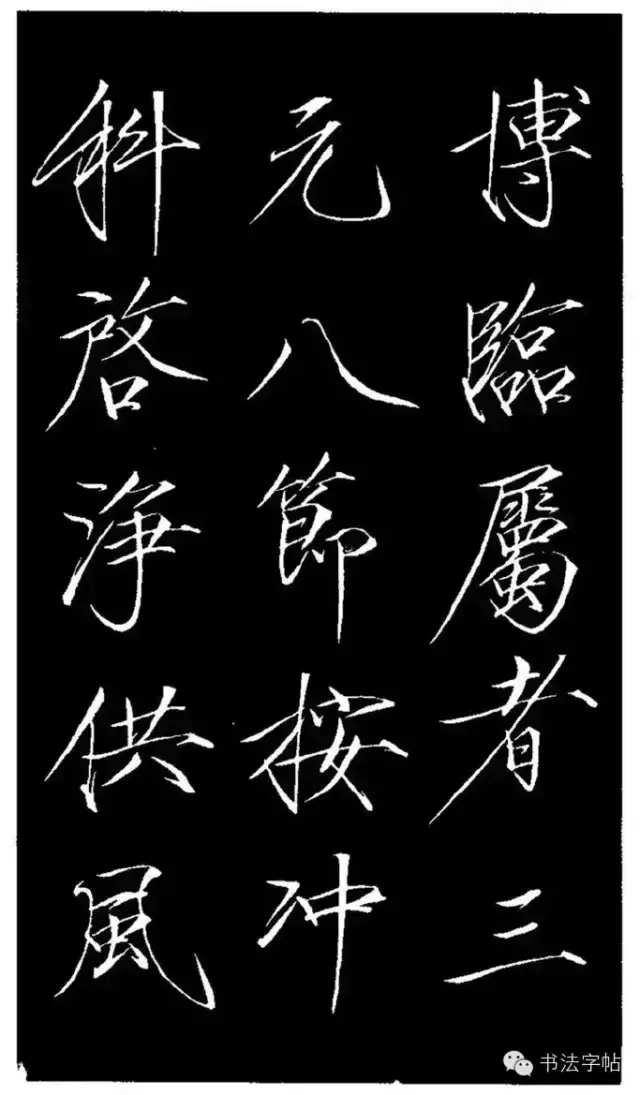 博臨屬者三
元八節按冲
科啓浄供風
书法字帖